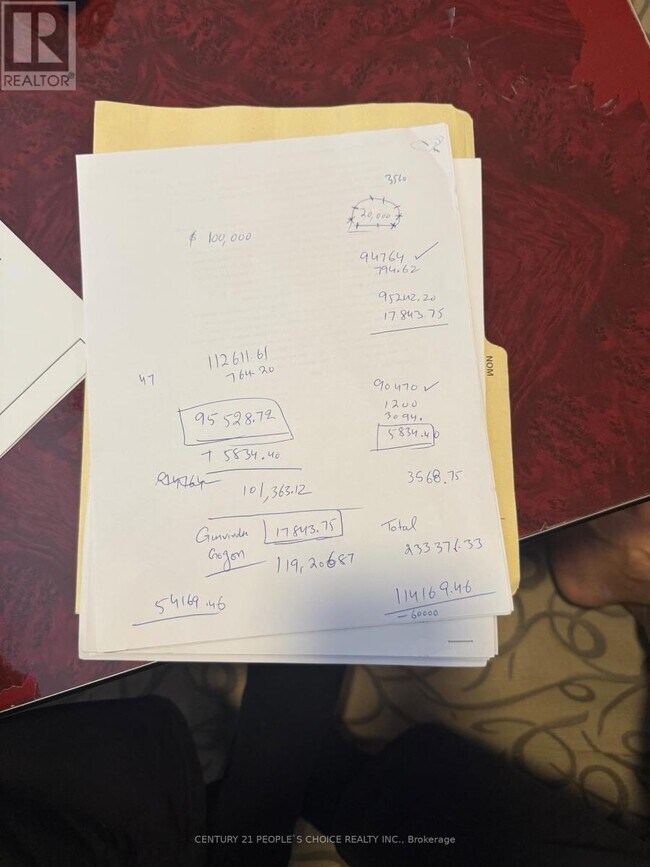 REALTOR®
3560
20,000
$ 100,000
94764 ✓
794.62
95242.20
17843.75
112611.61
764.20
47
90470 ✓
1200
3094.
95528.72
5834.40
+ 5834.40
94764
3568.75
101,363.12
17843.75
Total
23376.33
119,206.87
54169.46
114169.46
- 60000
NOM
CENTURY 21 PEOPLE`S CHOICE REALTY INC., Brokerage